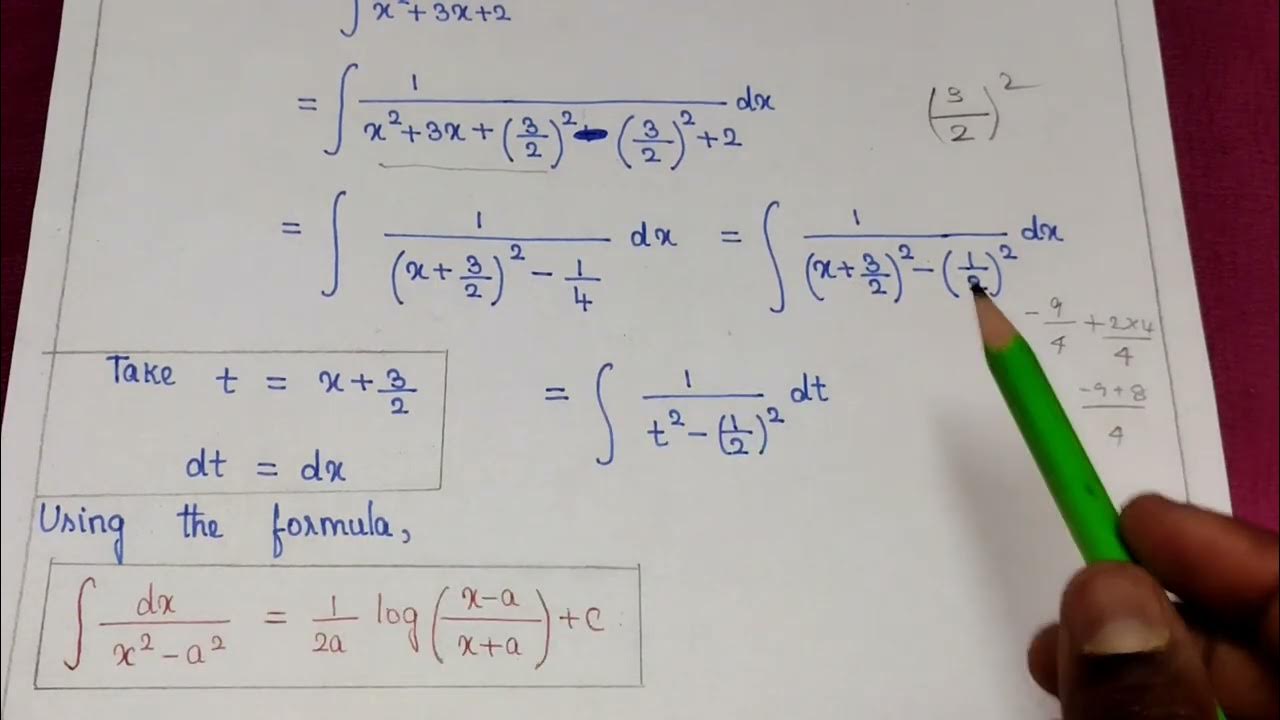 ∫ x² + 3x + 2
= ∫ 1 / (x² + 3x + (3/2)² - (3/2)² + 2) dx
(3/2)²
= ∫ 1 / ((x + 3/2)² - 1/4) dx = ∫ 1 / ((x + 3/2)² - (1/2)²) dx
-9/4 + 2×4/4
-9+8/4
Take t = x + 3/2
= ∫ 1 / (t² - (1/2)²) dt
dt = dx
Using the formula,
∫ dx / (x² - a²) = 1/2a log((x-a)/(x+a)) + c